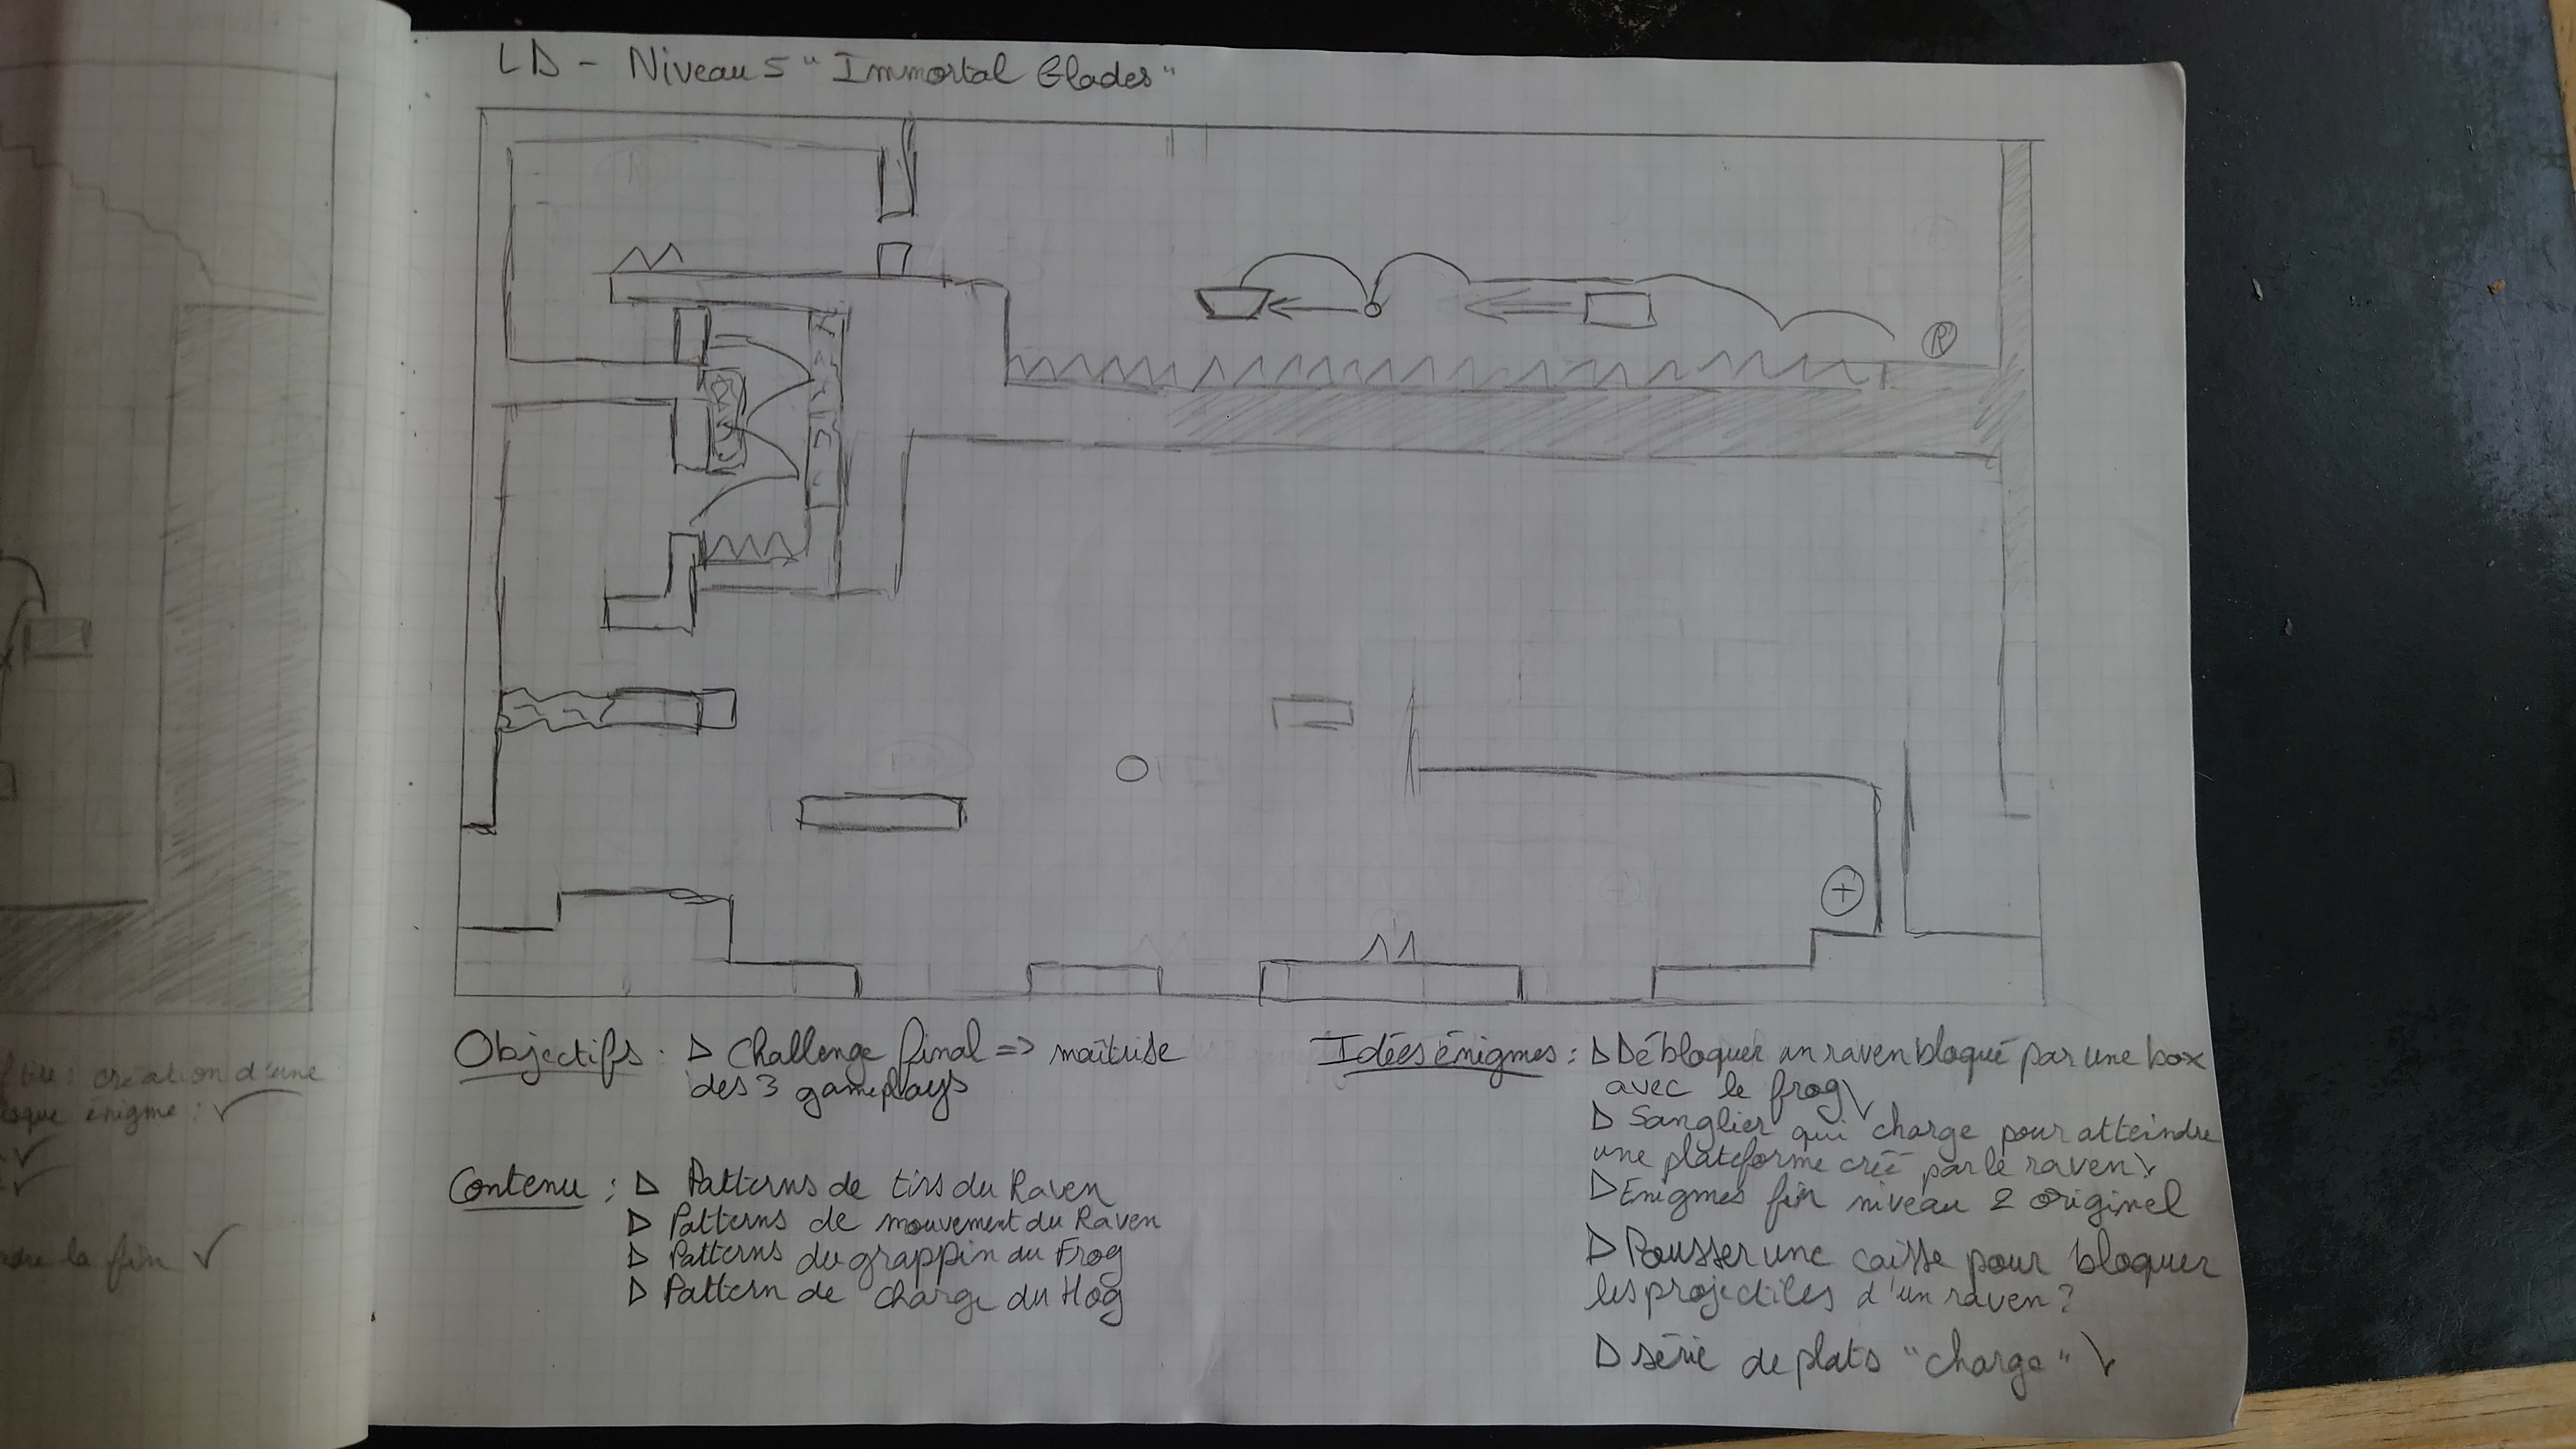 LD - Niveau 5 "Immortal Glades"
R
Objectifs : ▷ Challenge final => maîtrise
des 3 gameplays
Contenu : ▷ Patterns de tirs du Raven
▷ Patterns de mouvement du Raven
▷ Patterns du grappin du Frog
▷ Pattern de charge du Hog
Idées énigmes : ▷ Débloquer un raven bloqué par une box
avec le frog
▷ Sanglier qui charge pour atteindre
une plateforme créé par le raven
▷ Enigmes fin niveau 2 originel
▷ Pousser une caisse pour bloquer
les projectiles d'un raven ?
▷ série de plats "charge"
création d'une
énigme : ✓
la fin ✓